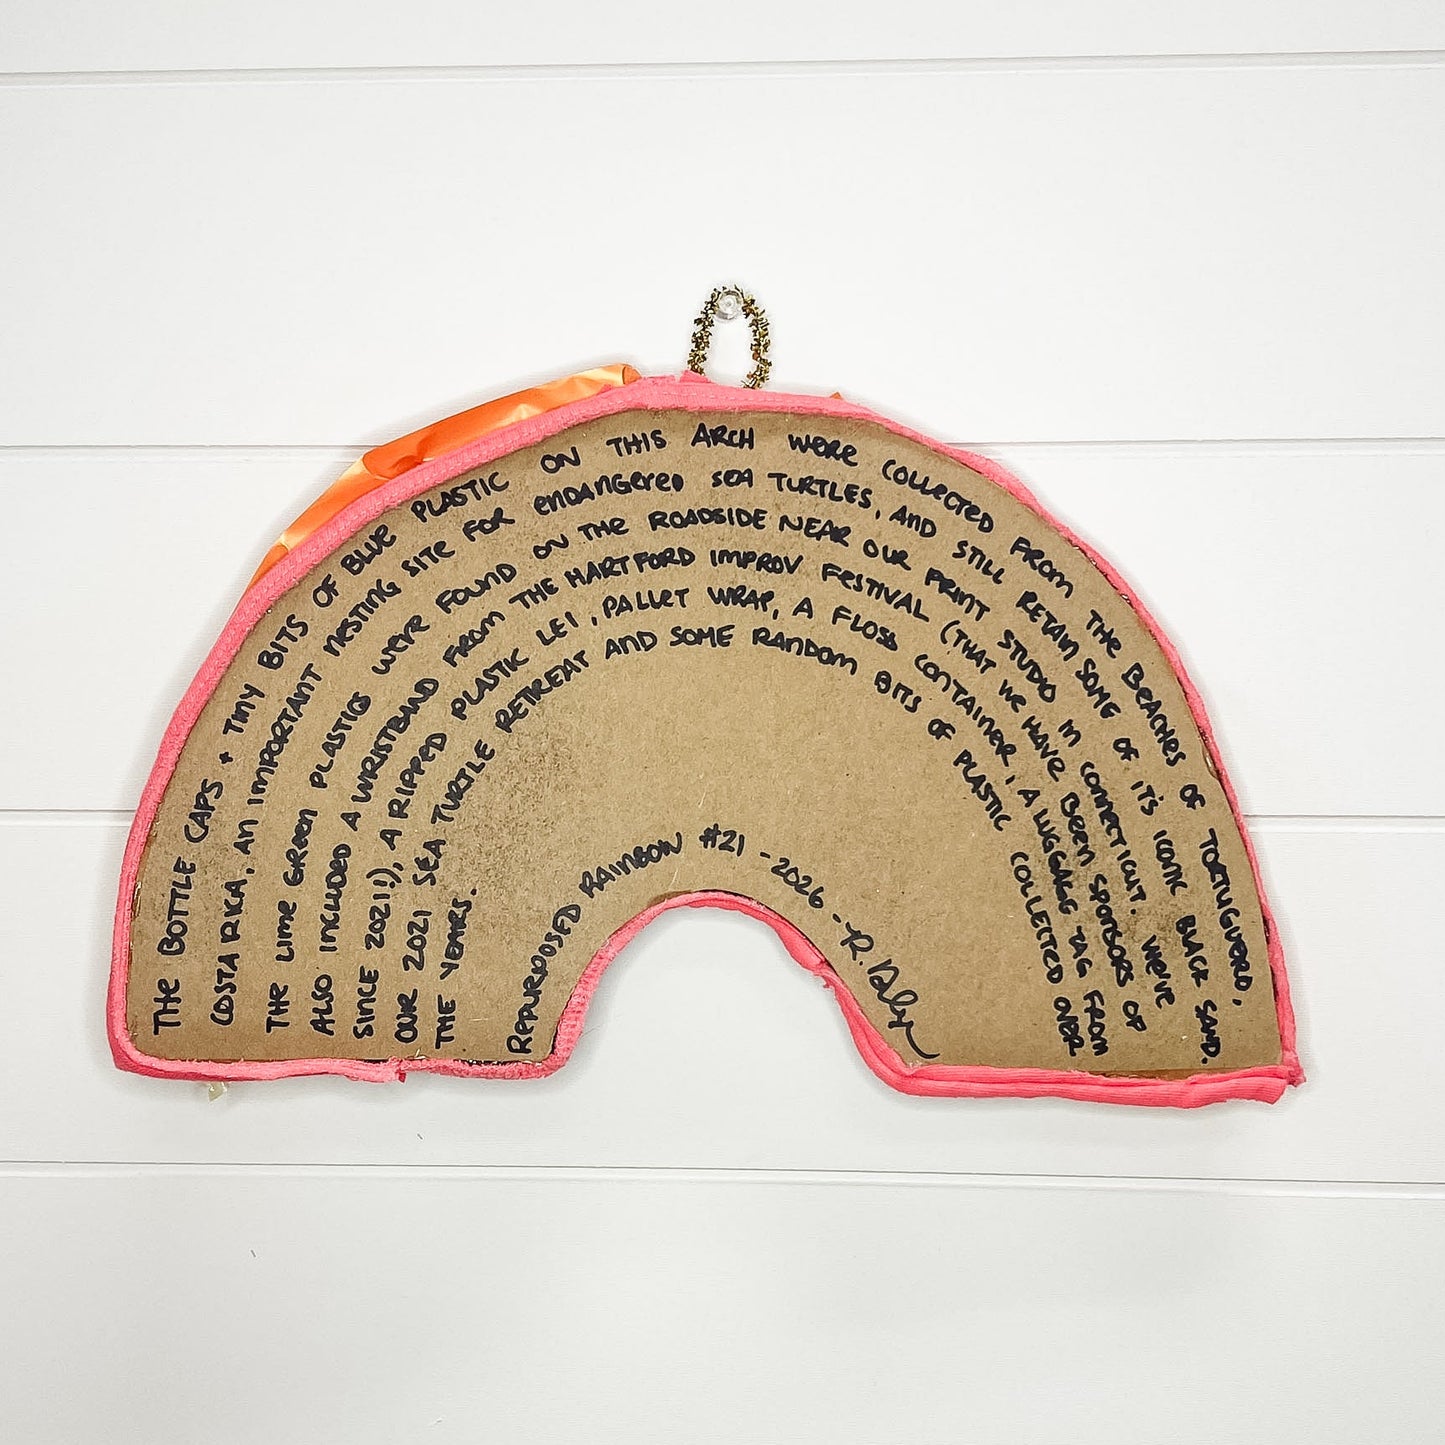 THE BOTTLE CAPS + TINY BITS OF BLUE PLASTIC ON THIS ARCH WERE COLLECTED FROM THE BEACHES OF TORTUGUERO,
COSTA RICA, AN IMPORTANT NESTING SITE FOR ENDANGERED SEA TURTLES, AND STILL RETAIN SOME OF IT'S ICONIC BLACK SAND.
THE LIME GREEN PLASTICS WERE FOUND ON THE ROADSIDE NEAR OUR PRINT STUDIO IN CONNECTICUT. WE'VE
ALSO INCLUDED A WRISTBAND FROM THE HARTFORD IMPROV FESTIVAL (THAT WE HAVE BEEN SPONSORS OF
SINCE 2021!), A RIPPED PLASTIC LEI, PALLET WRAP, A FLOSS CONTAINER, A LUGGAGE TAG FROM
OUR 2021 SEA TURTLE RETREAT AND SOME RANDOM BITS OF PLASTIC COLLECTED OVER
THE YEARS.
REPURPOSED RAINBOW #21 - 2026 - R. Daly